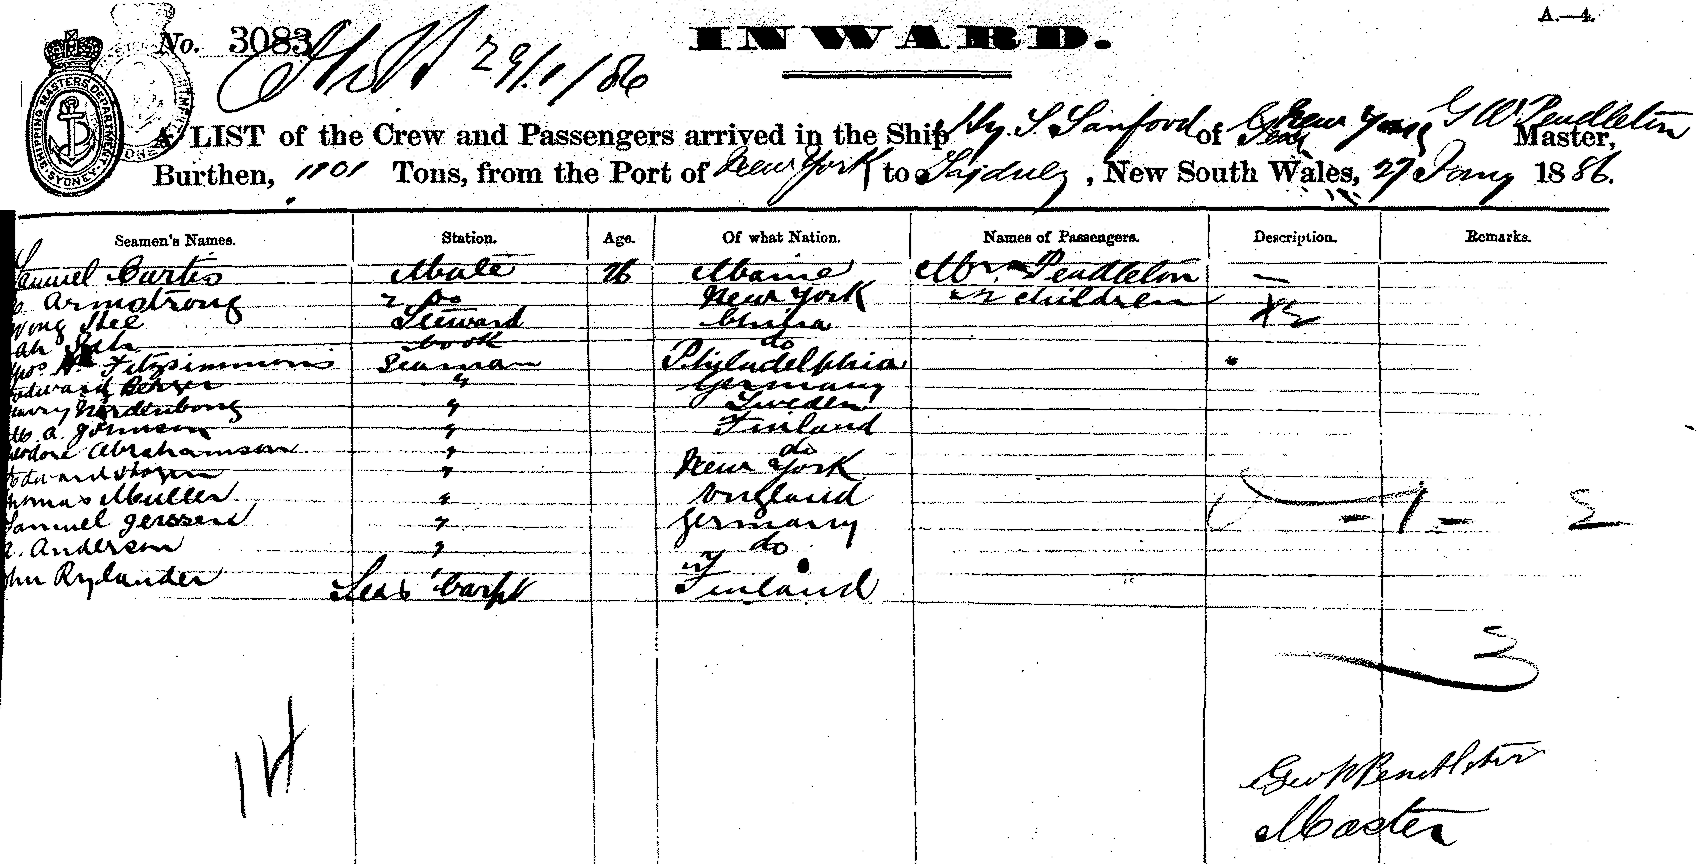 A.—4.
No. 3083
INWARD.
29/1/86
SHIPPING MASTERS DEPARTMENT SYDNEY
A LIST of the Crew and Passengers arrived in the Ship Hy. S. Sanford of New York G W Pendleton Master,
Burthen, Tons, from the Port of New York to Sydney, New South Wales, 27 Jany 1886.
Seamen's Names. Station. Age. Of what Nation. Names of Passengers. Description. Remarks.
Samuel Curtis Mate 26 Maine Mrs Pendleton —
Armstrong 2 Do New York 2 children
Steward China
Cook do
Fitzsimmons Seaman Philadelphia
Edward Berger " Germany
" Sweden
a. Johnson " Finland
Abrahamson " do
Edward " New York
Thomas Muller " England
Samuel Jerssen " Germany
Anderson " do
John Rylander Seas Carpt Finland
3
14
Geo W Pendleton
Master